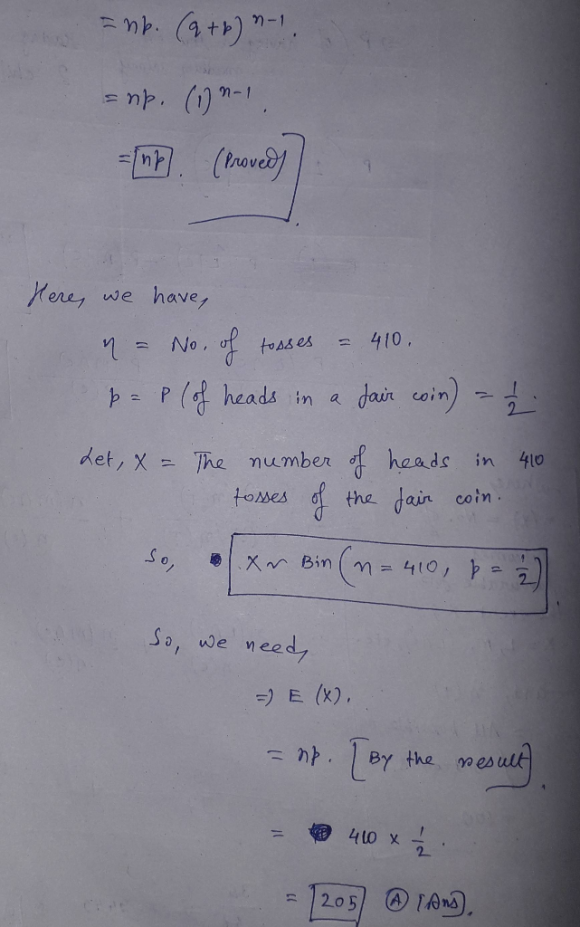 = np. (q+p)^n-1.
= np. (1)^n-1.
= np. (Proved)
Here, we have,
n = No. of tosses = 410.
p = P (of heads in a fair coin) = 1/2.
Let, X = The number of heads in 410
tosses of the fair coin.
So, X ~ Bin (n = 410, p = 1/2).
So, we need,
=) E (X).
= np. [By the result].
= 410 x 1/2.
= 205 (A) [Ans].